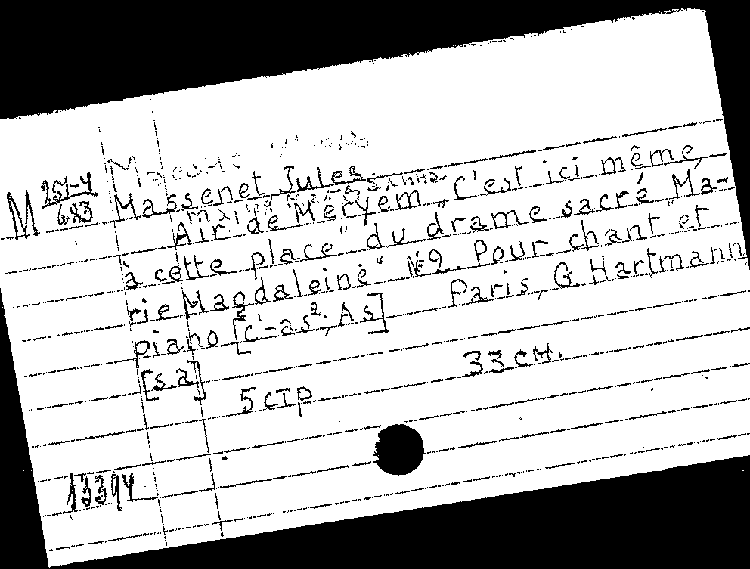 M 251-4
683
Massenet Jules
Air de Méryem „C'est ici même,
à cette place" du drame sacré „Ma-
rie Magdaleine" №2. Pour chant et
piano [c'-as²; As] Paris, G. Hartmann
[s a]
5 стр 33 см.
13394